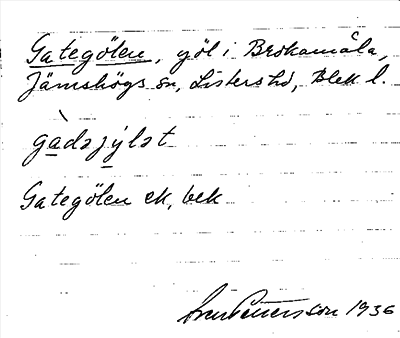 Gategölen, göl i Brokamåla,
Jämshögs sn, Listers hd, Blek l.
gàdəjýlət
Gategölen ek, bek
1936